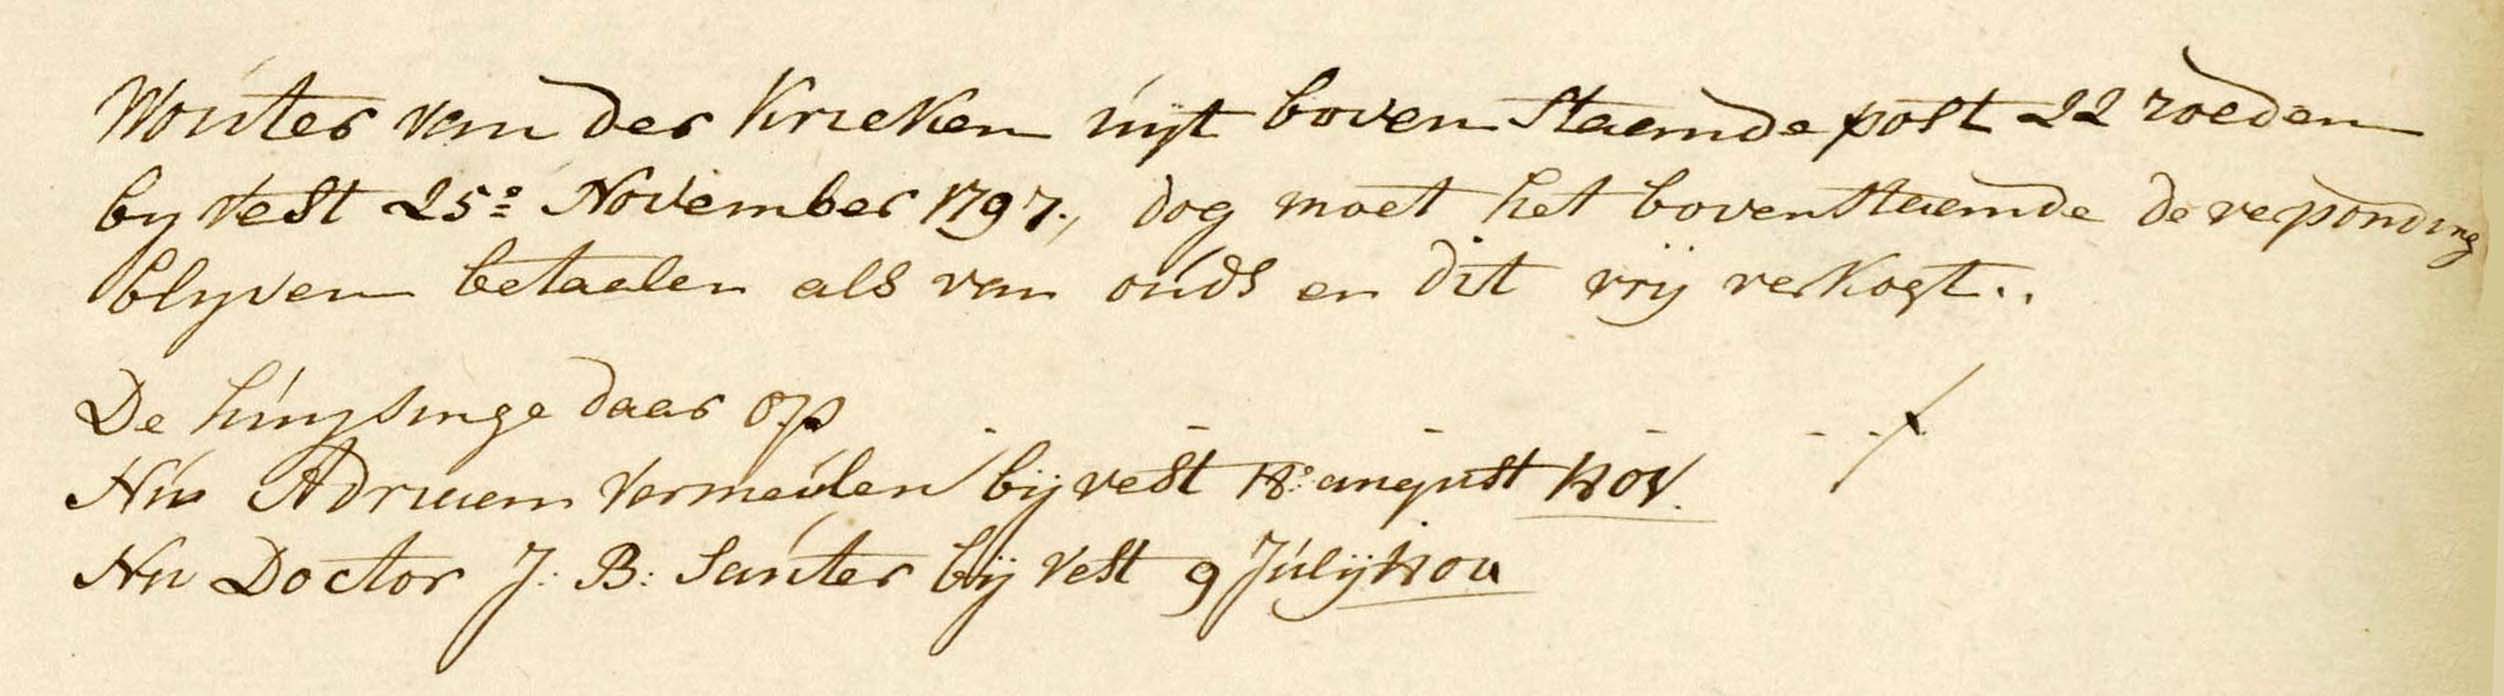 Wouter van der Krieken uijt bovenstaende post 22 roeden
by vest 25e November 1797., dog moet het bovenstaende de reponding
blyven betaelen als van ouds en dit vrij verkogt..
De huysinge daar op
Nu Adriaen Vermeulen bij vest 18e august
Nu Doctor J: B: Santer bij vest 9 Julij